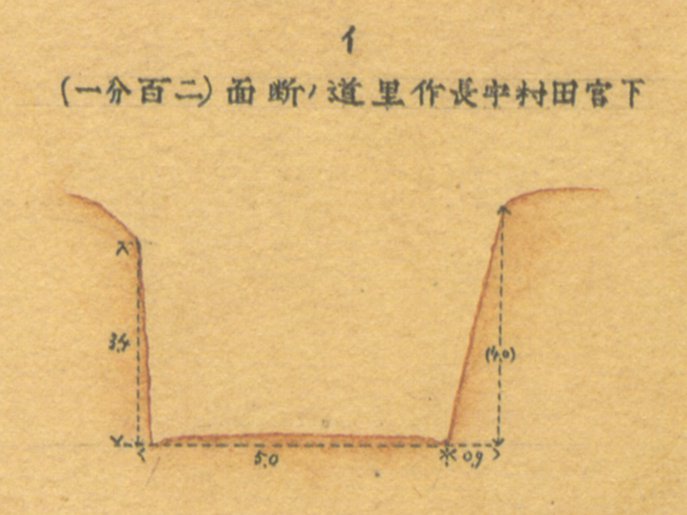 イ
下宮田村字長作里道ノ断面(二百分一)
3.4
(4.0)
5.0
0.9